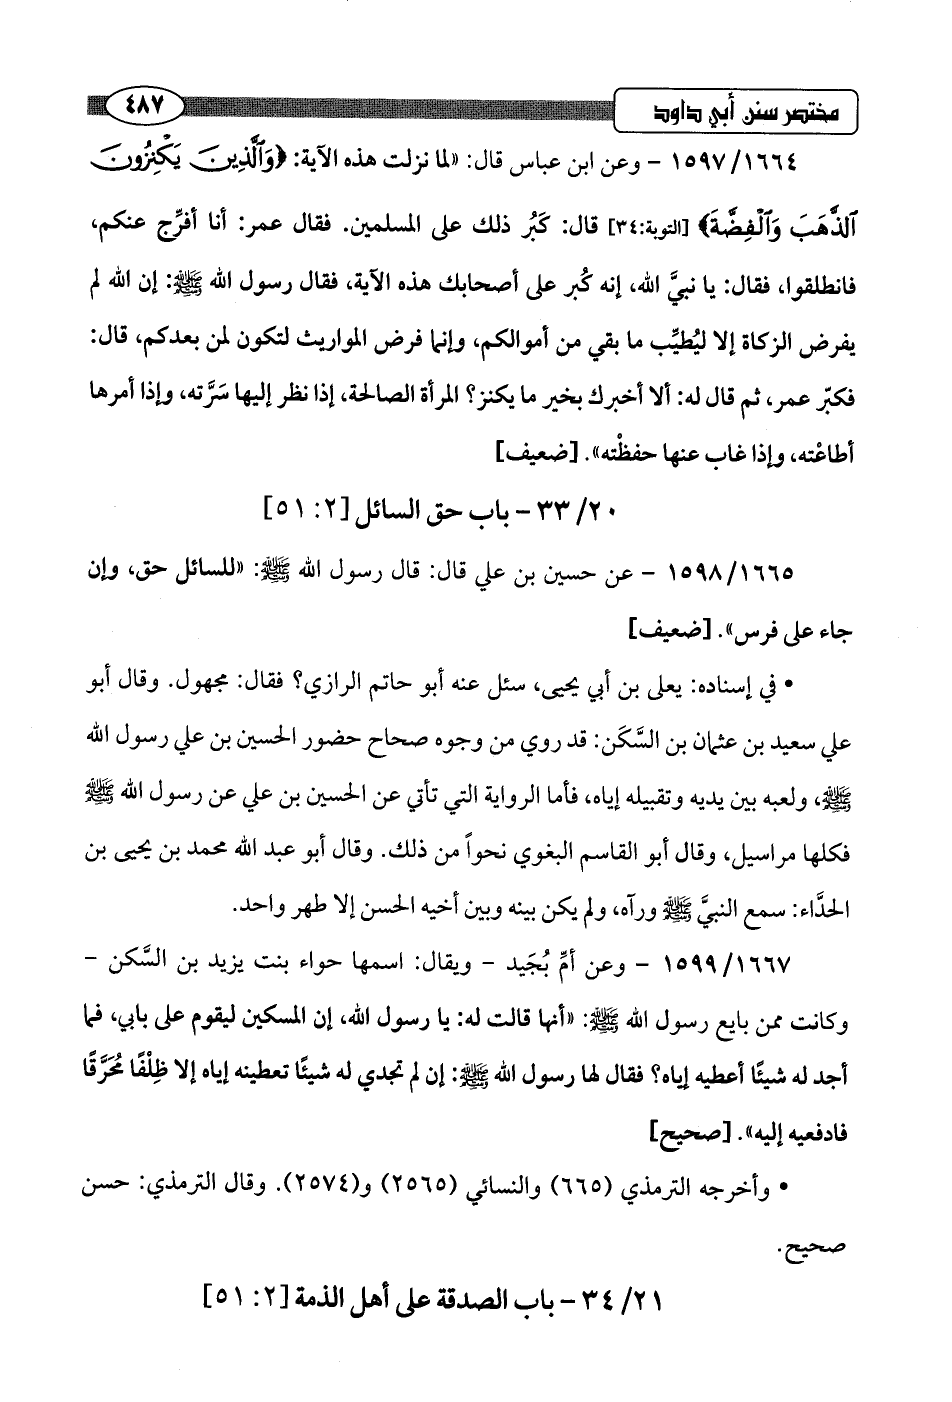 مختصر سنن أبي داود ٤٨٧
١٥٩٧/١٦٦٤ - وعن ابن عباس قال: «لما نزلت هذه الآية: ﴿وَٱلَّذِينَ يَكْنِزُونَ
ٱلذَّهَبَ وَٱلْفِضَّةَ﴾ [التوبة:٣٤] قال: كَبُر ذلك على المسلمين. فقال عمر: أنا أفرِّج عنكم،
فانطلقوا، فقال: يا نبيَّ الله، إنه كُبر على أصحابك هذه الآية، فقال رسول الله ﷺ: إن الله لم
يفرض الزكاة إلا ليُطيِّب ما بقي من أموالكم، وإنما فرض المواريث لتكون لمن بعدكم، قال:
فكبّر عمر، ثم قال له: ألا أخبرك بخير ما يكنز؟ المرأة الصالحة، إذا نظر إليها سَرَّته، وإذا أمرها
أطاعْته، وإذا غاب عنها حفظْته». [ضعيف]
٣٣/٢٠ - باب حق السائل [٢: ٥١]
١٥٩٨/١٦٦٥ - عن حسين بن علي قال: قال رسول الله ﷺ: «للسائل حق، وإن
جاء على فرس». [ضعيف]
• في إسناده: يعلى بن أبي يحيى، سئل عنه أبو حاتم الرازي؟ فقال: مجهول. وقال أبو
علي سعيد بن عثمان بن السَّكَن: قد روي من وجوه صحاح حضور الحسين بن علي رسول الله
ﷺ، ولعبه بين يديه وتقبيله إياه، فأما الرواية التي تأتي عن الحسين بن علي عن رسول الله ﷺ
فكلها مراسيل، وقال أبو القاسم البغوي نحواً من ذلك. وقال أبو عبد الله محمد بن يحيى بن
الحذَّاء: سمع النبيَّ ﷺ ورآه، ولم يكن بينه وبين أخيه الحسن إلا طهر واحد.
١٥٩٩/١٦٦٧ - وعن أمِّ بُجَيد - ويقال: اسمها حواء بنت يزيد بن السَّكن -
وكانت ممن بايع رسول الله ﷺ: «أنها قالت له: يا رسول الله، إن المسكين ليقوم على بابي، فما
أجد له شيئًا أعطيه إياه؟ فقال لها رسول الله ﷺ: إن لم تجدي له شيئًا تعطينه إياه إلا ظِلْفًا مُحَرَّقًا
فادفعيه إليه». [صحيح]
• وأخرجه الترمذي (٦٦٥) والنسائي (٢٥٦٥) و(٢٥٧٤). وقال الترمذي: حسن
صحيح.
٣٤/٢١ - باب الصدقة على أهل الذمة [٢: ٥١]